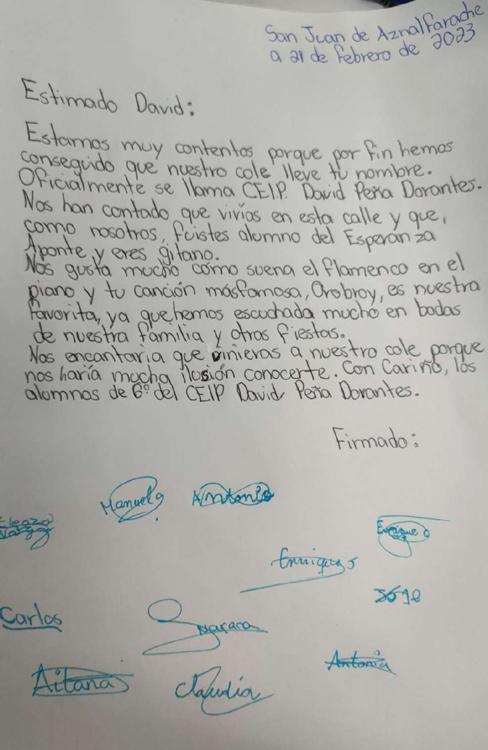 San Juan de Aznalfarache
a 21 de febrero de 2023
Estimado David:
Estamos muy contentos porque por fin hemos
conseguido que nuestro cole lleve tu nombre.
Oficialmente se llama CEIP David Peña Dorantes.
Nos han contado que vivías en esta calle y que,
como nosotros, fuistes alumno del Esperanza
Aponte y eres gitano.
Nos gusta mucho como suena el flamenco en el
piano y tu canción más famosa, Orobroy, es nuestra
favorita, ya que hemos escuchada mucho en bodas
de nuestra familia y otras fiestas.
Nos encantaria que vinieras a nuestro cole porque
nos haría mucha ilusión conocerte. Con Cariño, los
alumnos de 6º del CEIP David Peña Dorantes.
Firmado:
Manuela Antonio
Enrique
Carlos
Antonia
Aitana Claudia